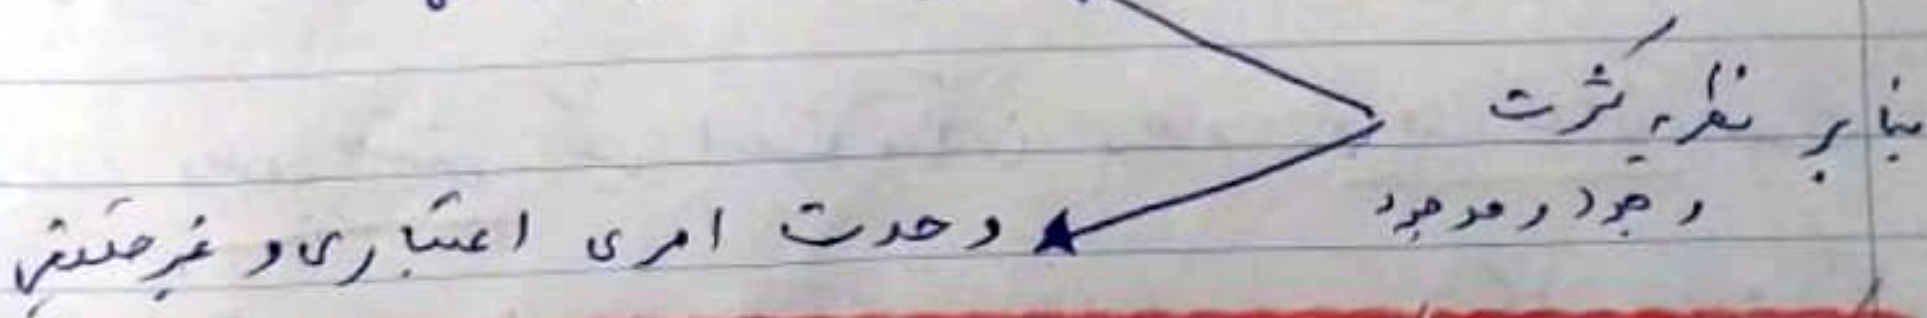 بنابر نظریه کثرت
وجود و موجود
وحدت امری اعتباری و غیر حقیقی